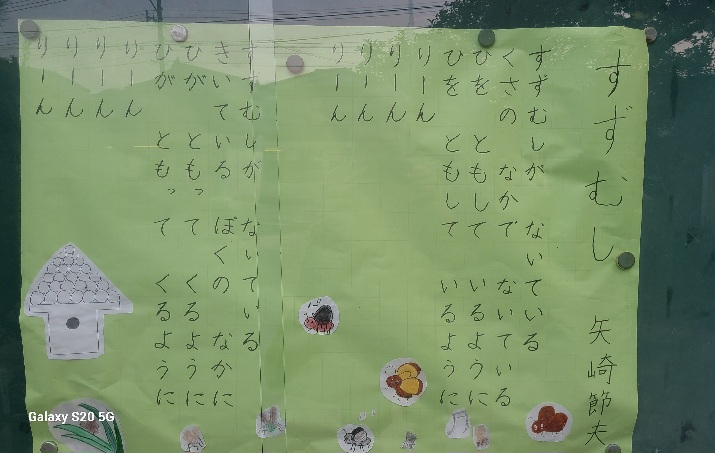 すずむし
矢崎節夫
すずむしが ないている
くさの なかで ないている
ひを ともして いるように
ひを ともして いるように
りーん
りーん
りーん
りーん
すずむしが ないている
きいている ぼくの なかに
ひが ともって くるように
ひが ともって くるように
りーん
りーん
りーん
りーん
Galaxy S20 5G